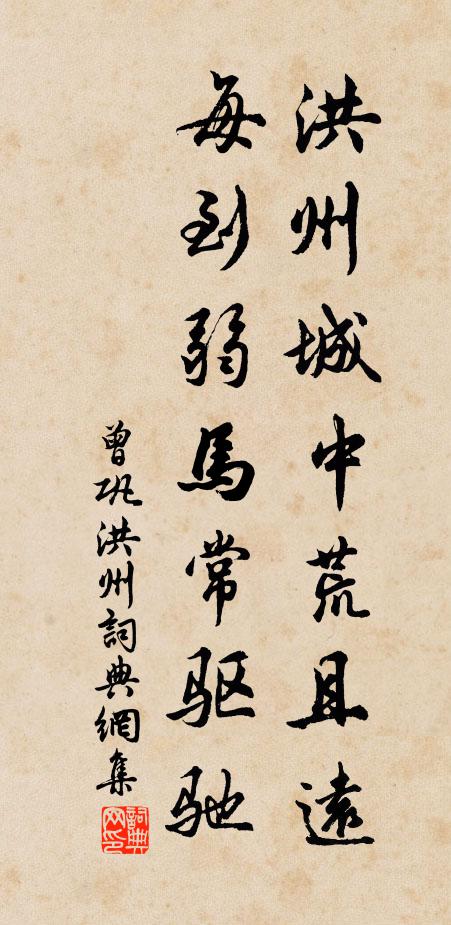 洪州城中荒且遠
每到弱馬常驱驰
曾巩洪州詞典網集
詞典网印